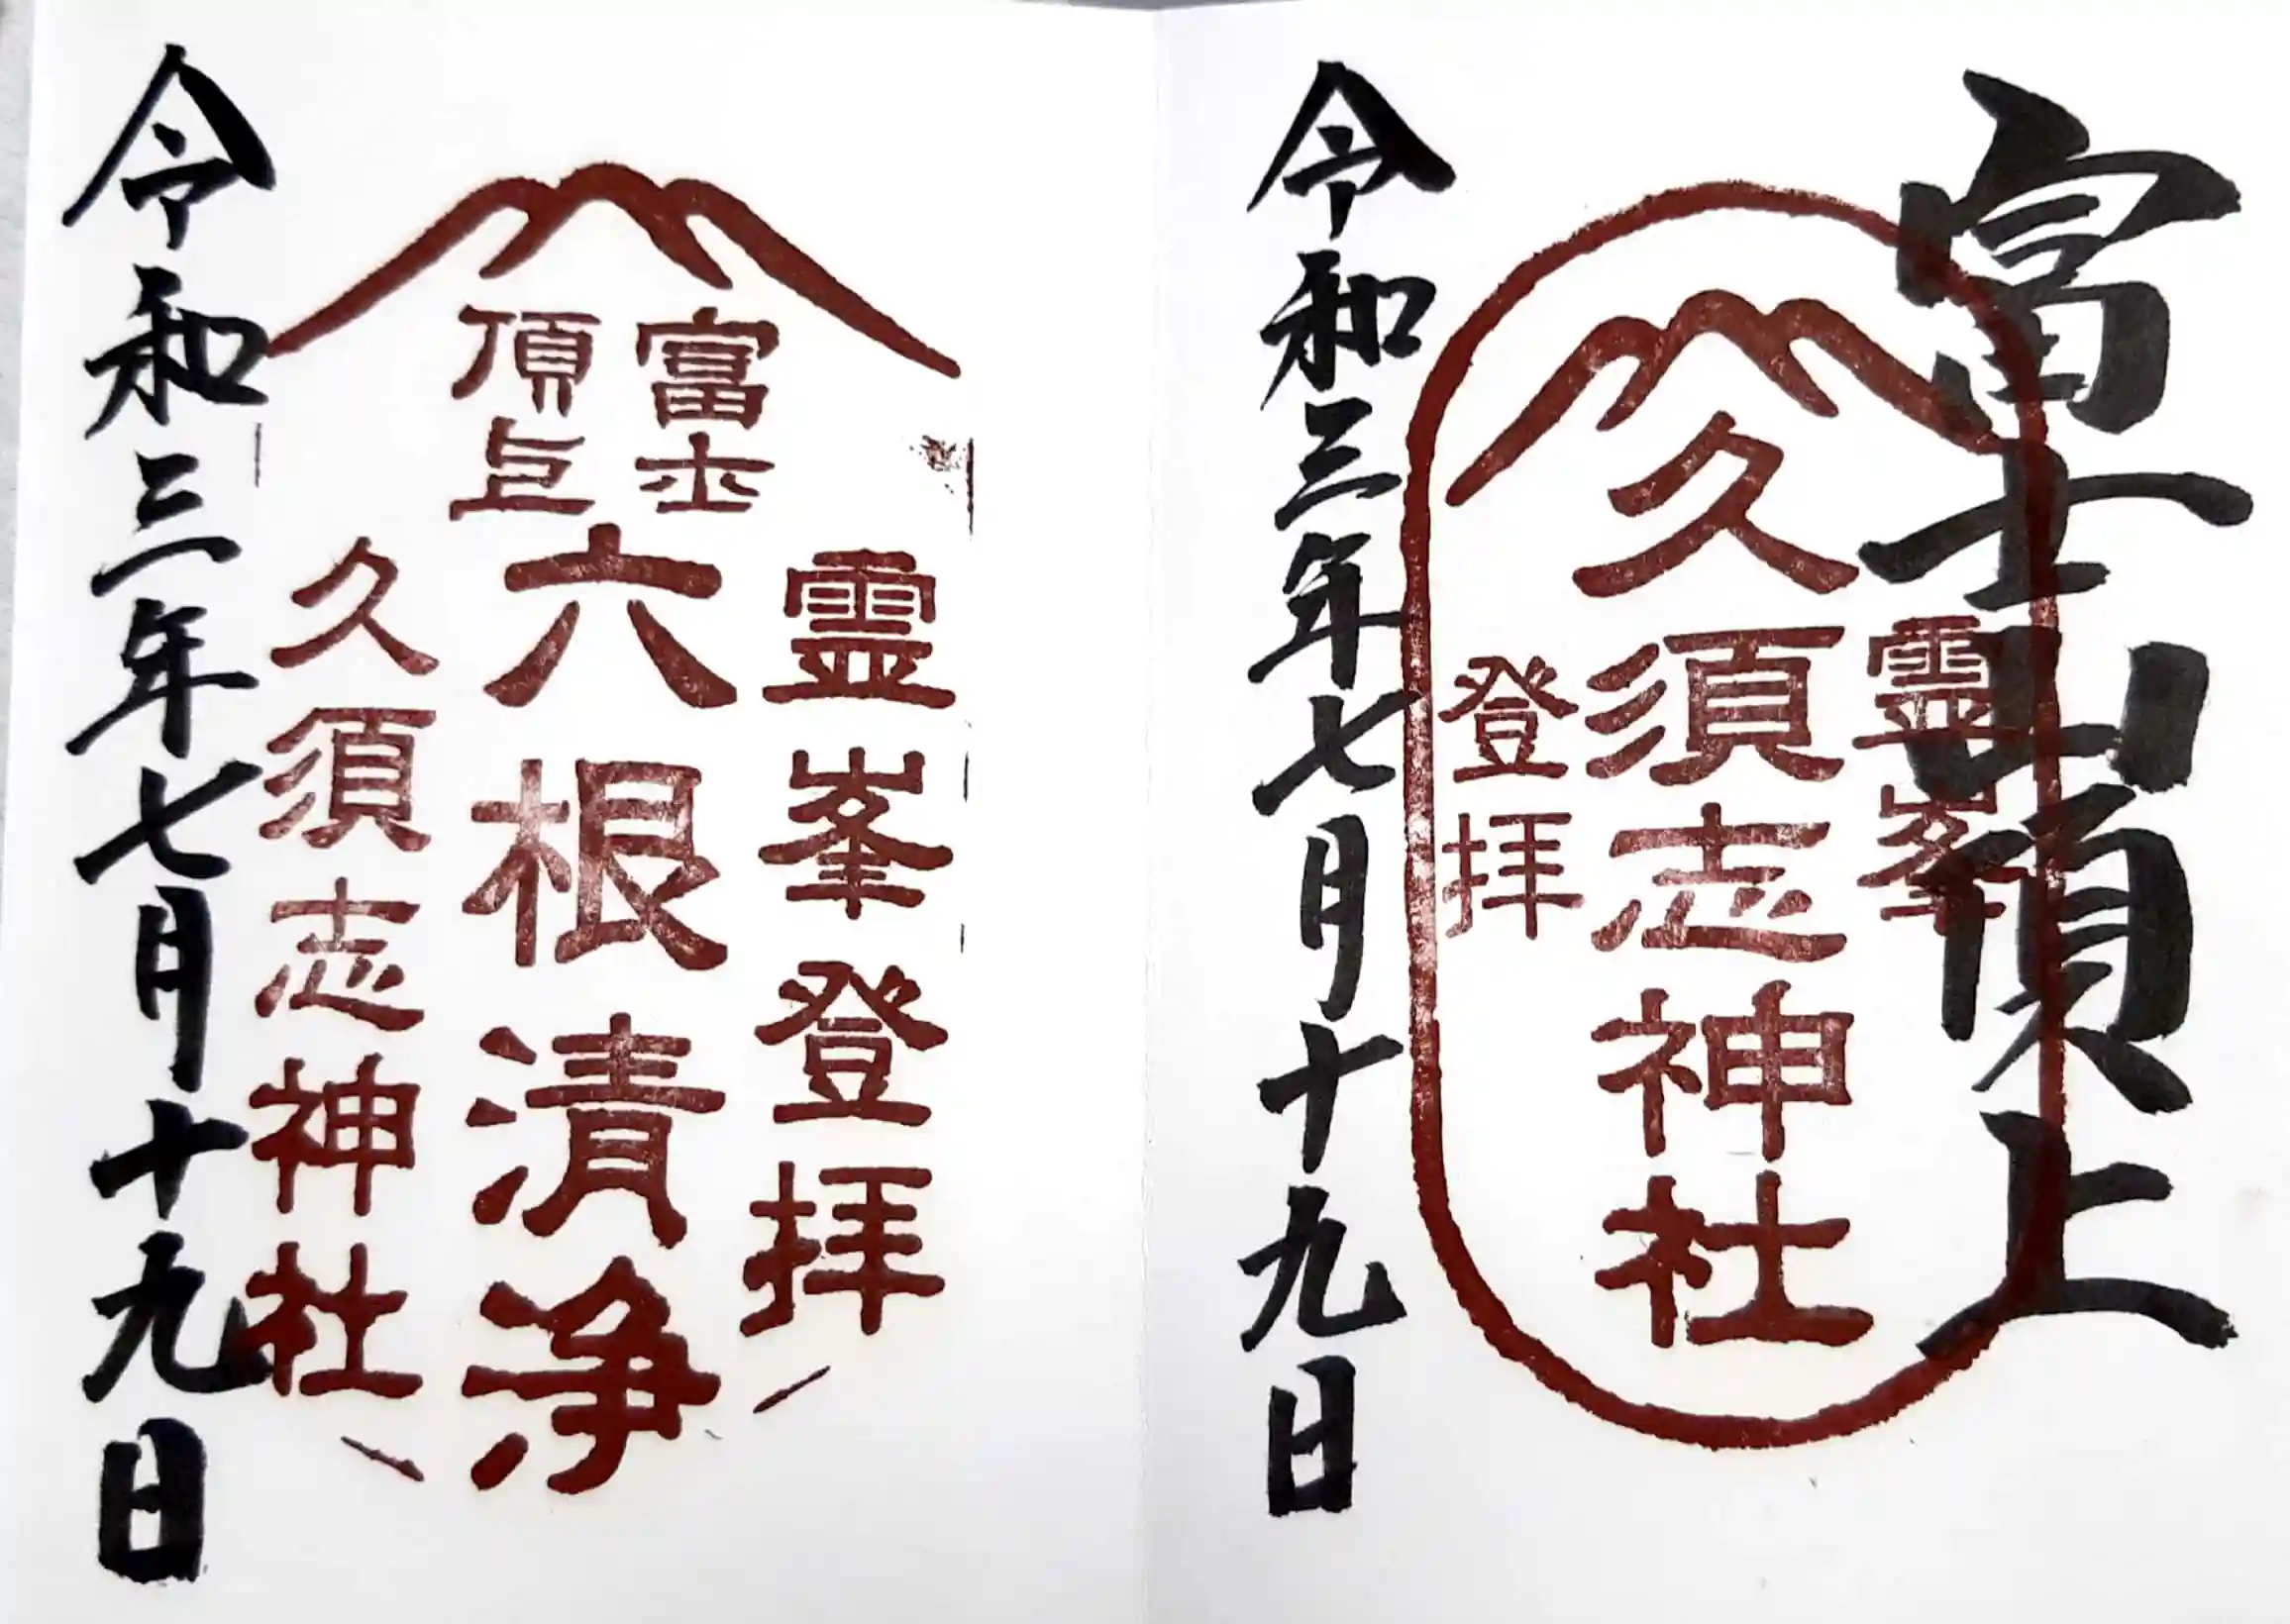 富士山頂上
霊峯
久須志神社
登拝
令和三年七月十九日
霊峯登拝
富士
頂上
六根清浄
久須志神社
令和三年七月十九日